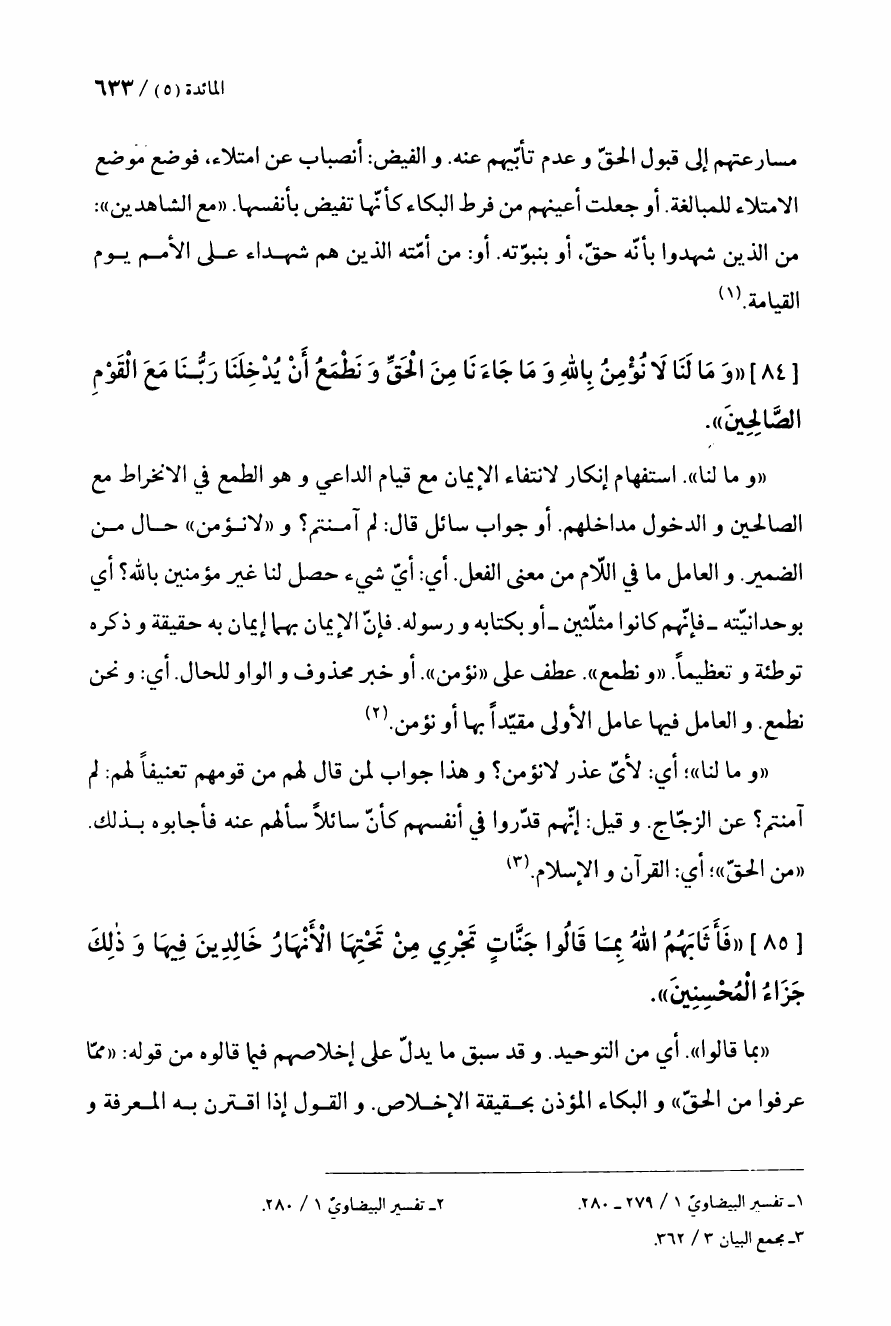 المائدة (٥) / ٦٣٣
مسارعتهم إلى قبول الحقّ و عدم تأبّيهم عنه. و الفيض: أنصباب عن امتلاء، فوضع موضع
الامتلاء للمبالغة. أو جعلت أعينهم من فرط البكاء كأنّها تفيض بأنفسها. «مع الشاهدين»:
من الذين شهدوا بأنّه حقّ، أو بنبوّته. أو: من أمّته الذين هم شهداء على الأمم يوم
القيامة.(١)
[٨٤] «وَ مَا لَنَا لَا نُؤْمِنُ بِاللهِ وَ مَا جَاءَنَا مِنَ الْحَقِّ وَ نَطْمَعُ أَنْ يُدْخِلَنَا رَبُّنَا مَعَ الْقَوْمِ
الصَّالِحِينَ».
«و ما لنا». استفهام إنكار لانتفاء الإيمان مع قيام الداعي و هو الطمع في الانخراط مع
الصالحين و الدخول مداخلهم. أو جواب سائل قال: لم آمنتم؟ و «لانؤمن» حال من
الضمير. و العامل ما في اللّام من معنى الفعل. أي: أيّ شيء حصل لنا غير مؤمنين بالله؟ أي
بوحدانيّته ـ فإنّهم كانوا مثلّثين ـ أو بكتابه و رسوله. فإنّ الإيمان بهما إيمان به حقيقة و ذكره
توطئة و تعظيماً. «و نطمع». عطف على «نؤمن». أو خبر محذوف و الواو للحال. أي: و نحن
نطمع. و العامل فيها عامل الأولى مقيّداً بها أو نؤمن.(٢)
«و ما لنا»؛ أي: لأيّ عذر لانؤمن؟ و هذا جواب لمن قال لهم من قومهم تعنيفاً لهم: لم
آمنتم؟ عن الزجّاج. و قيل: إنّهم قدّروا في أنفسهم كأنّ سائلاً سألهم عنه فأجابوه بذلك.
«من الحقّ»؛ أي: القرآن و الإسلام.(٣)
[٨٥] «فَأَثَابَهُمُ اللهُ بِمَا قَالُوا جَنَّاتٍ تَجْرِي مِنْ تَحْتِهَا الْأَنْهَارُ خَالِدِينَ فِيهَا وَ ذٰلِكَ
جَزَاءُ الْمُحْسِنِينَ».
«بما قالوا». أي من التوحيد. و قد سبق ما يدلّ على إخلاصهم فيما قالوه من قوله: «ممّا
عرفوا من الحقّ» و البكاء المؤذن بحقيقة الإخلاص. و القول إذا اقترن به المعرفة و
١ـ تفسير البيضاويّ ١ / ٢٧٩ ـ ٢٨٠.
٢ـ تفسير البيضاويّ ١ / ٢٨٠.
٣ـ مجمع البيان ٣ / ٣٦٢.